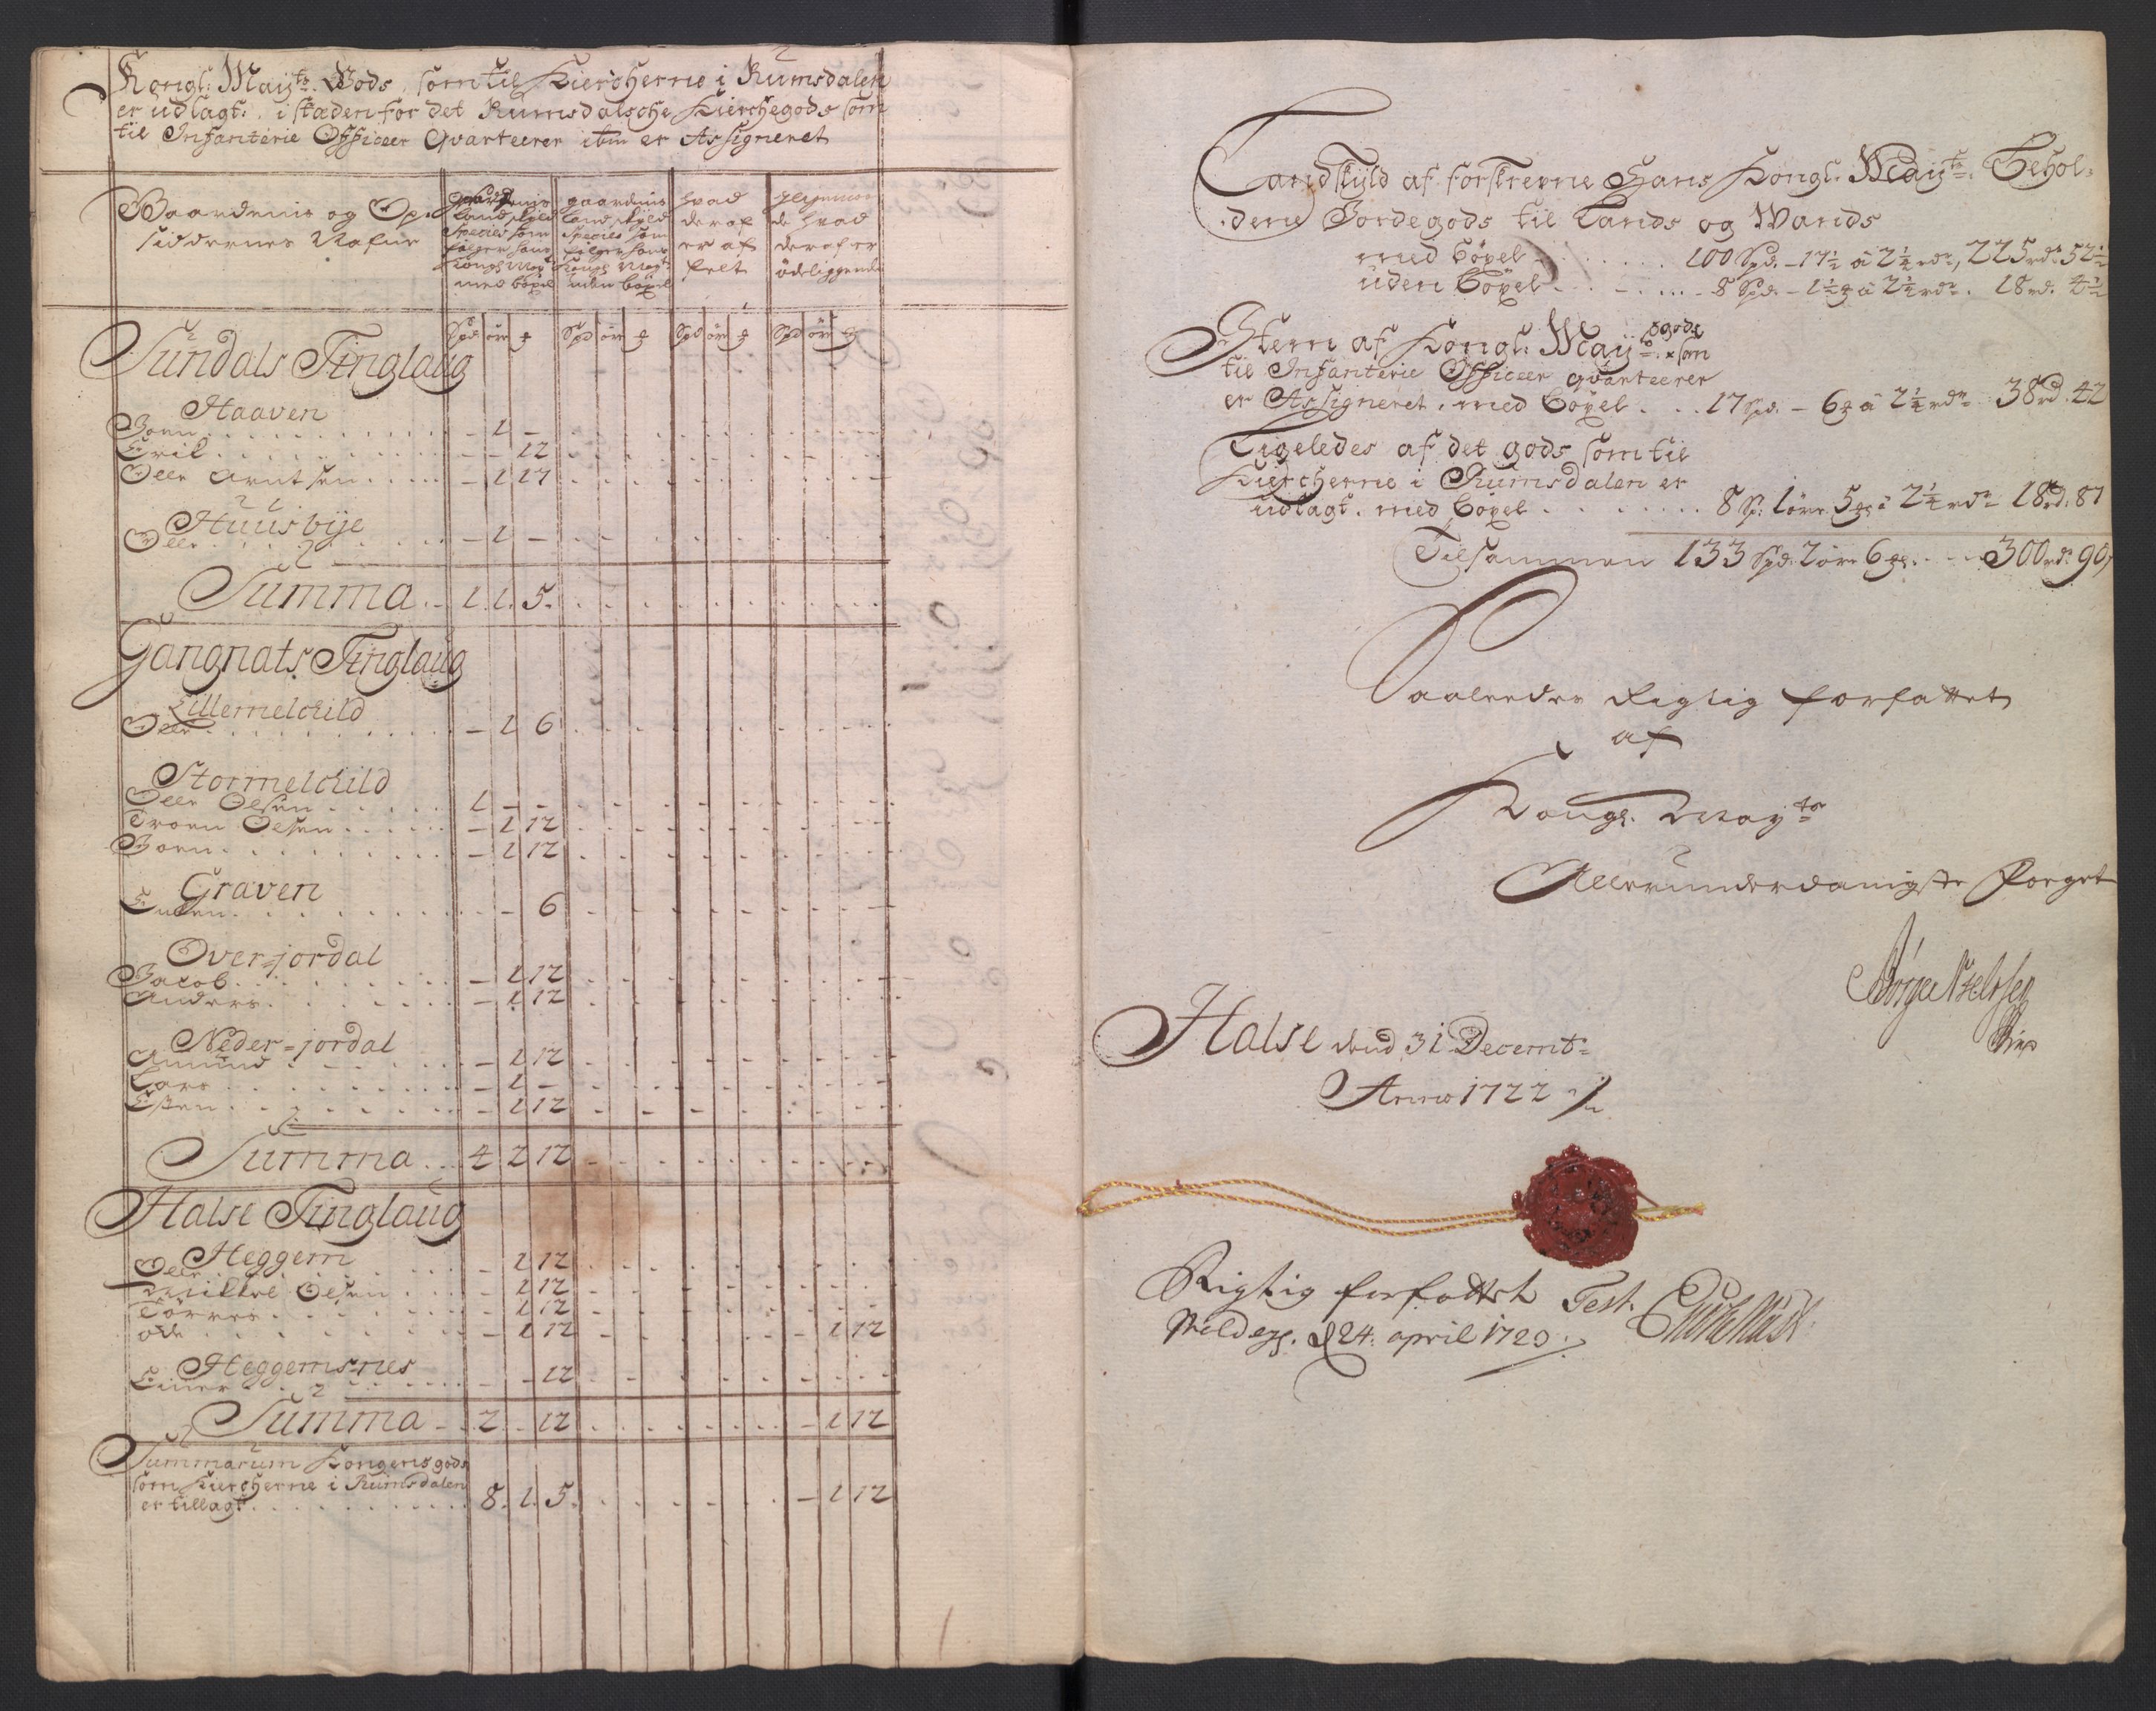 Kongl: Mayts. Gods, som til Kiercherne i Rumsdalen
er udlagt: i stæden for det Rumsdalsche Kierchegods som
til Infanterie Officeer Qvarteerer ibm er Assigneret
Gaardenis og Op-
siddernes Nafne
gaardenis
land skyld
Species som
følger hans
Kongs Mayt
med böxel
gaardenis
land skyld
Species som
følger hans
Kongs Mayt:
uden böxel
hvad
deraf
er af
felt
hvad
deraf er
ödeliggende
Spd ör Spd ör Spd ör Spd ör
Sundals Tinglaug
Haaven
Joen - 1 -
Erik - - 12
Olle Arntsen - 1 17
Huusbye
Olle - 1 -
Summa 1. 1. 5.
Gangnats Tinglaug
Lillemelchild
Olle - 1 6
Stormelchild
Olle Olsen 1 - -
Troen Olsen - 1 12
Joen - 1 12
Graven
- - 6
Over-jordal
Jacob - 1 12
Anders - 1 12
Neder-jordal
Amund - 1 12
Lars - 1 -
Esten - 1 12
Summa 4 2 12
Halse Tinglaug
Heggem
Olle - 1 12
Mikkel Olsen - 1 12
Törres - 1 12
öde - 1 12 - 1 12
Heggems-nes
Einer - - 12
Summa 2 - 12 - 1 12
Summarum Kongens gods
som Kiercherne i Rumsdalen
er tillagt 8. 1. 5. - 1 12
Landskyld af forskrevne Hans Kongl: Mayts. Behol-
dene Jordegods til Lands og Wands
med böxel 100 Spd. - 17½ à 2¼ rdr, 225 rdr 52½
uden böxel 8 Spd. - 1½ à 2¼ rdr. 18 rd. 4½
Item af Kongl: Mayts. gods som
til Infanterie Officeer qvarteerer
er Assigneret, med böxel 17 Spd. - 6 à 2¼ rdr 38 rd. 42
Ligeledes af det gods som til
Kiercherne i Rumsdalen er
udlagt. med böxel 8 Sp: 1 öre 5 à 2¼ rdr 18 rd. 87
Tilsammen 133 Spd: 2 öre 6 300 rdr 90,
Saaledes Rigtig forfattet
af
Kongl. Mayts
Allerunderdanigste Foeget
Halse dend 31 Decembr
Anno 1722
Rigtig forfattet Test.
24. april 1723